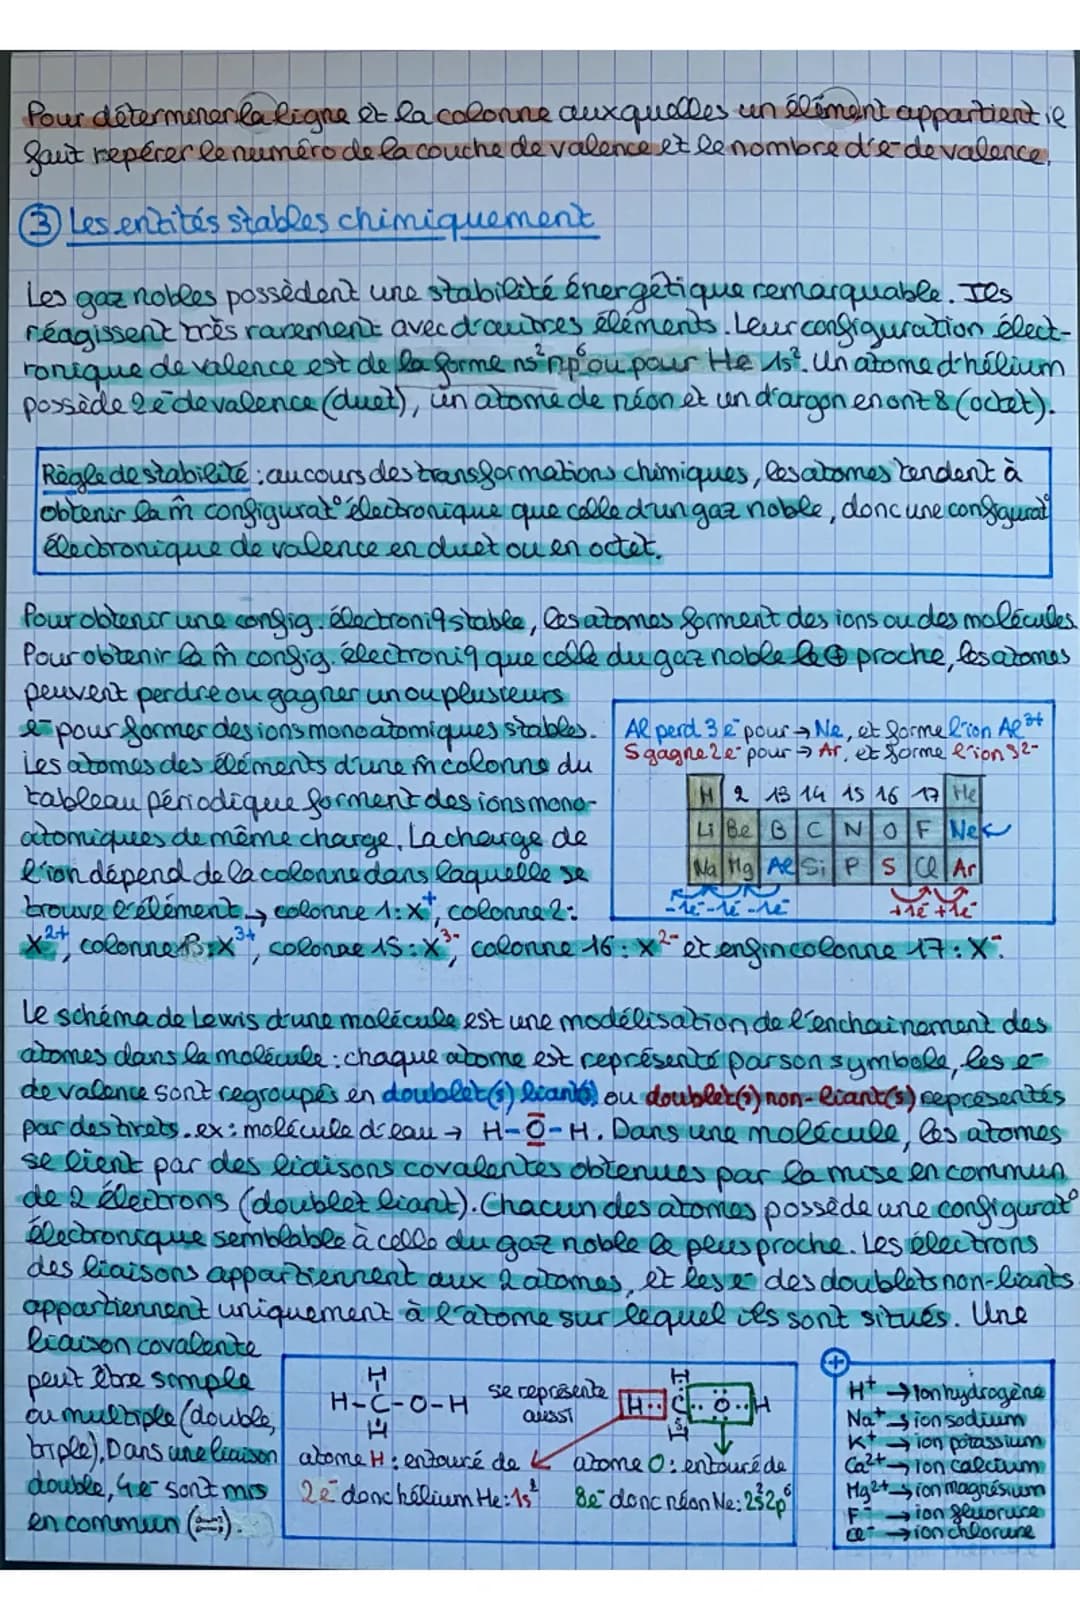 Pour déterminer la ligne et la colonne auxquelles un élément appartient il
faut repérer le numéro de la couche de valence et le nombre d'e- de valence.
③ Les entités stables chimiquement
Les gaz nobles possèdent une stabilité énergétique remarquable. Ils
réagissent très rarement avec d'autres éléments. Leur configuration élect-
ronique de valence est de la forme ns² np⁶ ou pour He 1s². Un atome d'hélium
possède 2e- de valence (duet), un atome de néon et un d'argon en ont 8 (octet).
Règle de stabilité : au cours des transformations chimiques, les atomes tendent à
obtenir la m̂ configurat° électronique que celle d'un gaz noble, donc une configurat°
électronique de valence en duet ou en octet.
Pour obtenir une config. électroniq stable, les atomes forment des ions ou des molécules.
Pour obtenir la m̂ config. électroniq que celle du gaz noble le ⊕ proche, les atomes
peuvent perdre ou gagner un ou plusieurs
e- pour former des ions monoatomiques stables.
Les atomes des éléments d'une m̂ colonne du
tableau périodique forment des ions mono-
atomiques de même charge. La charge de
l'ion dépend de la colonne dans laquelle se
trouve l'élément → colonne 1 : X⁺, colonne 2 :
X²⁺, colonne 13 : X³⁺, colonne 15 : X³⁻, colonne 16 : X²⁻ et enfin colonne 17 : X⁻.
Al perd 3 e- pour → Ne, et forme l'ion Al³⁺
S gagne 2e- pour → Ar, et forme l'ion S²⁻
H 2 13 14 15 16 17 He
Li Be B C N O F Ne
Na Mg Al Si P S Cl Ar
-1e- -1e- -1e- +1e- +1e-
Le schéma de Lewis d'une molécule est une modélisation de l'enchainement des
atomes dans la molécule : chaque atome est représenté par son symbole, les e-
de valence sont regroupés en doublet(s) liant(s) ou doublet(s) non-liant(s) représentés
par des tirets. ex : molécule d'eau → H-O-H. Dans une molécule, les atomes
se lient par des liaisons covalentes obtenues par la mise en commun
de 2 électrons (doublet liant). Chacun des atomes possède une configurat°
électronique semblable à celle du gaz noble le plus proche. Les électrons
des liaisons appartiennent aux 2 atomes, et les e- des doublets non-liants
appartiennent uniquement à l'atome sur lequel ils sont situés. Une
liaison covalente
peut être simple
ou multiple (double,
triple). Dans une liaison
double, 4e- sont mis
en commun (::).
H
H-C-O-H
H
se représente
aussi
H
H : C : O : H
H
atome H : entouré de
2e- donc hélium He : 1s²
atome O : entouré de
8e- donc néon Ne : 2s²2p⁶
⊕
H⁺ → ion hydrogène
Na⁺ → ion sodium
K⁺ → ion potassium
Ca²⁺ → ion calcium
Mg²⁺ → ion magnésium
F⁻ → ion fluorure
Cl⁻ → ion chlorure